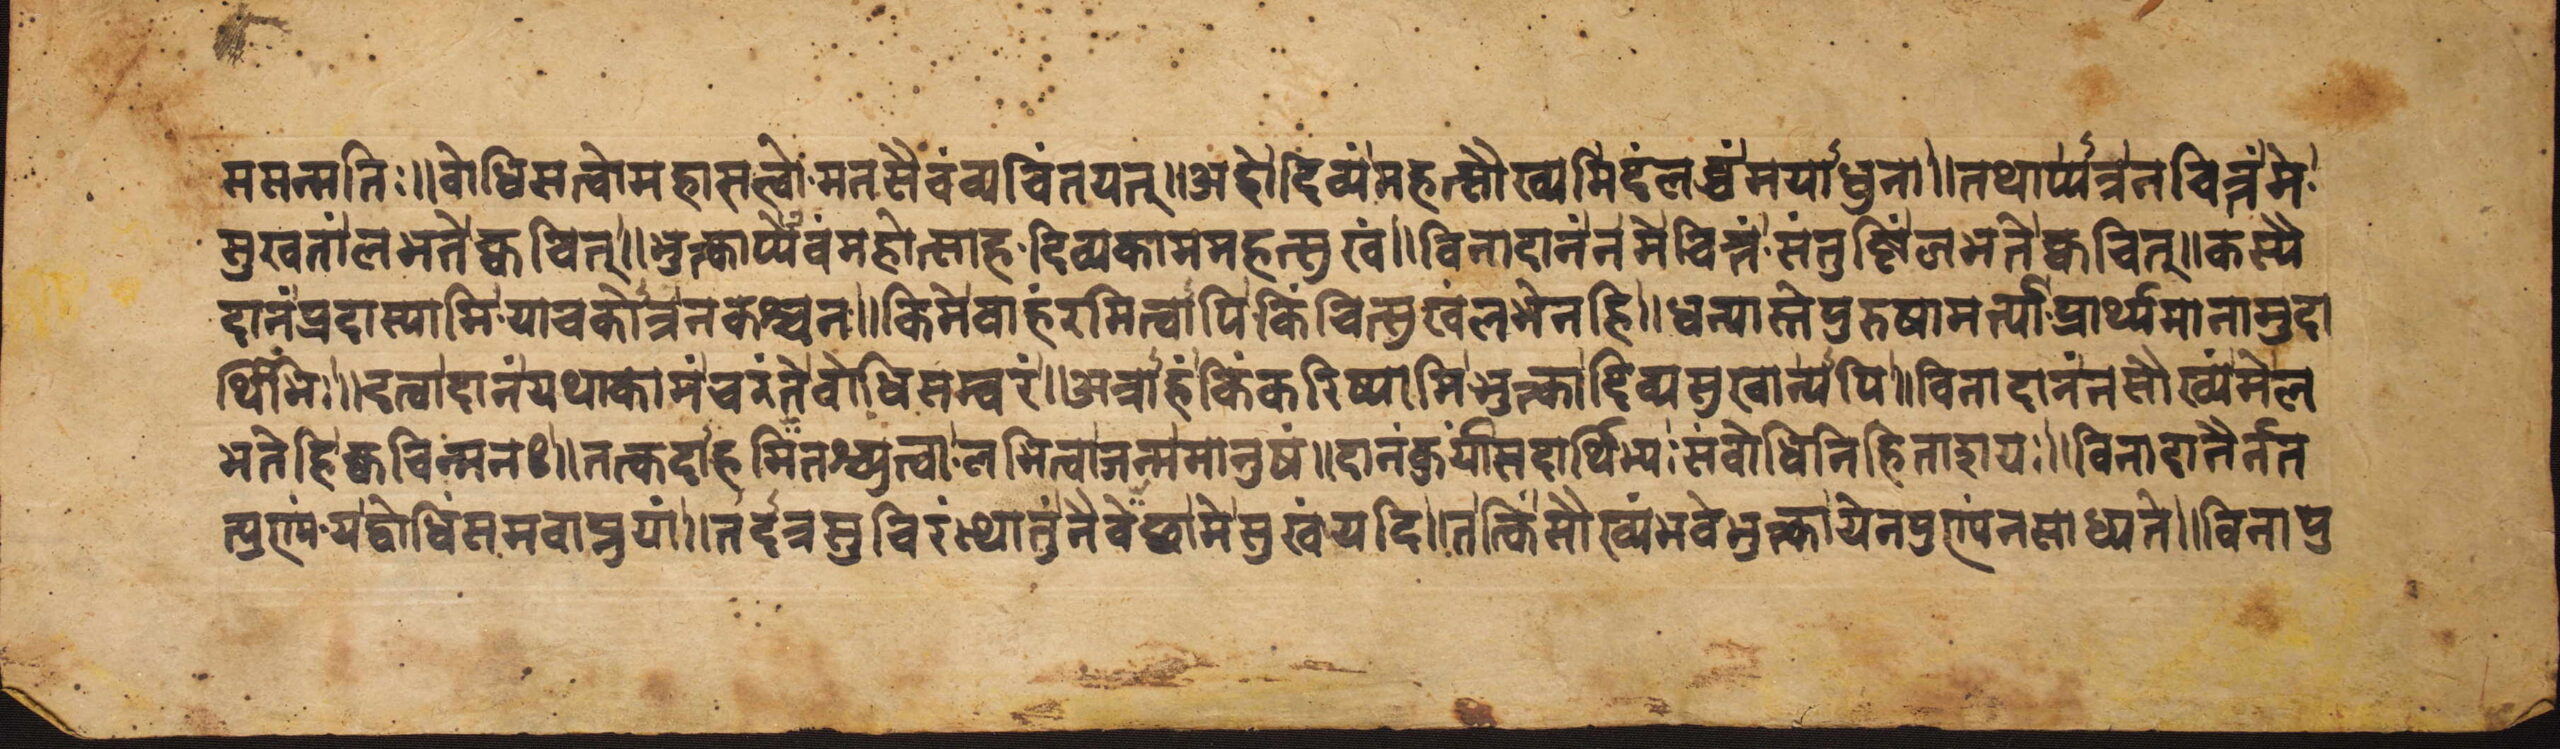 मसन्मतिः॥बोधिसत्वोमहासत्वोमनसैवंव्यचिंतयत्॥अहोदिव्यंमहत्सौख्यमिदंलब्धंमयाधुना॥तथाप्यत्रनचित्तंमे
सुखतांलभतेक्वचित्॥भुक्त्वाप्येवंमहोत्साहदिव्यकाममहत्सुखं॥विनादानंनमेचित्तंसंतुष्टिंलभतेक्वचित्॥कस्यै
दानंप्रदास्यामियाचकोत्रनकश्चन॥किमेवाहंरमित्वापिकिंचित्सुखंलभेनहि॥धन्यास्तेपुरुषामर्त्याप्रार्थ्यमानामुदा
र्थिभिः॥दत्वादानंयथाकामंचरंतेबोधिसम्वरं॥अत्राहंकिंकरिष्यामिभुक्त्वादिव्यसुखान्यपि॥विनादानंनसौख्यंमेल
भतेहिक्वचिन्मनः॥तत्कदाहमितश्च्युत्वालभित्वाजन्ममानुषं॥दानंकुर्यांसदार्थिभ्यःसंबोधिनिहिताशयः॥विनादानैर्नत
त्पुण्यंयद्बोधिंसमवाप्नुयां॥तदत्रसुचिरंस्थातुंनैवेछामेसुखंयदि॥तत्किंसौख्यंभवेभुक्त्वायेनपुण्यंनसाध्यते॥विनापु